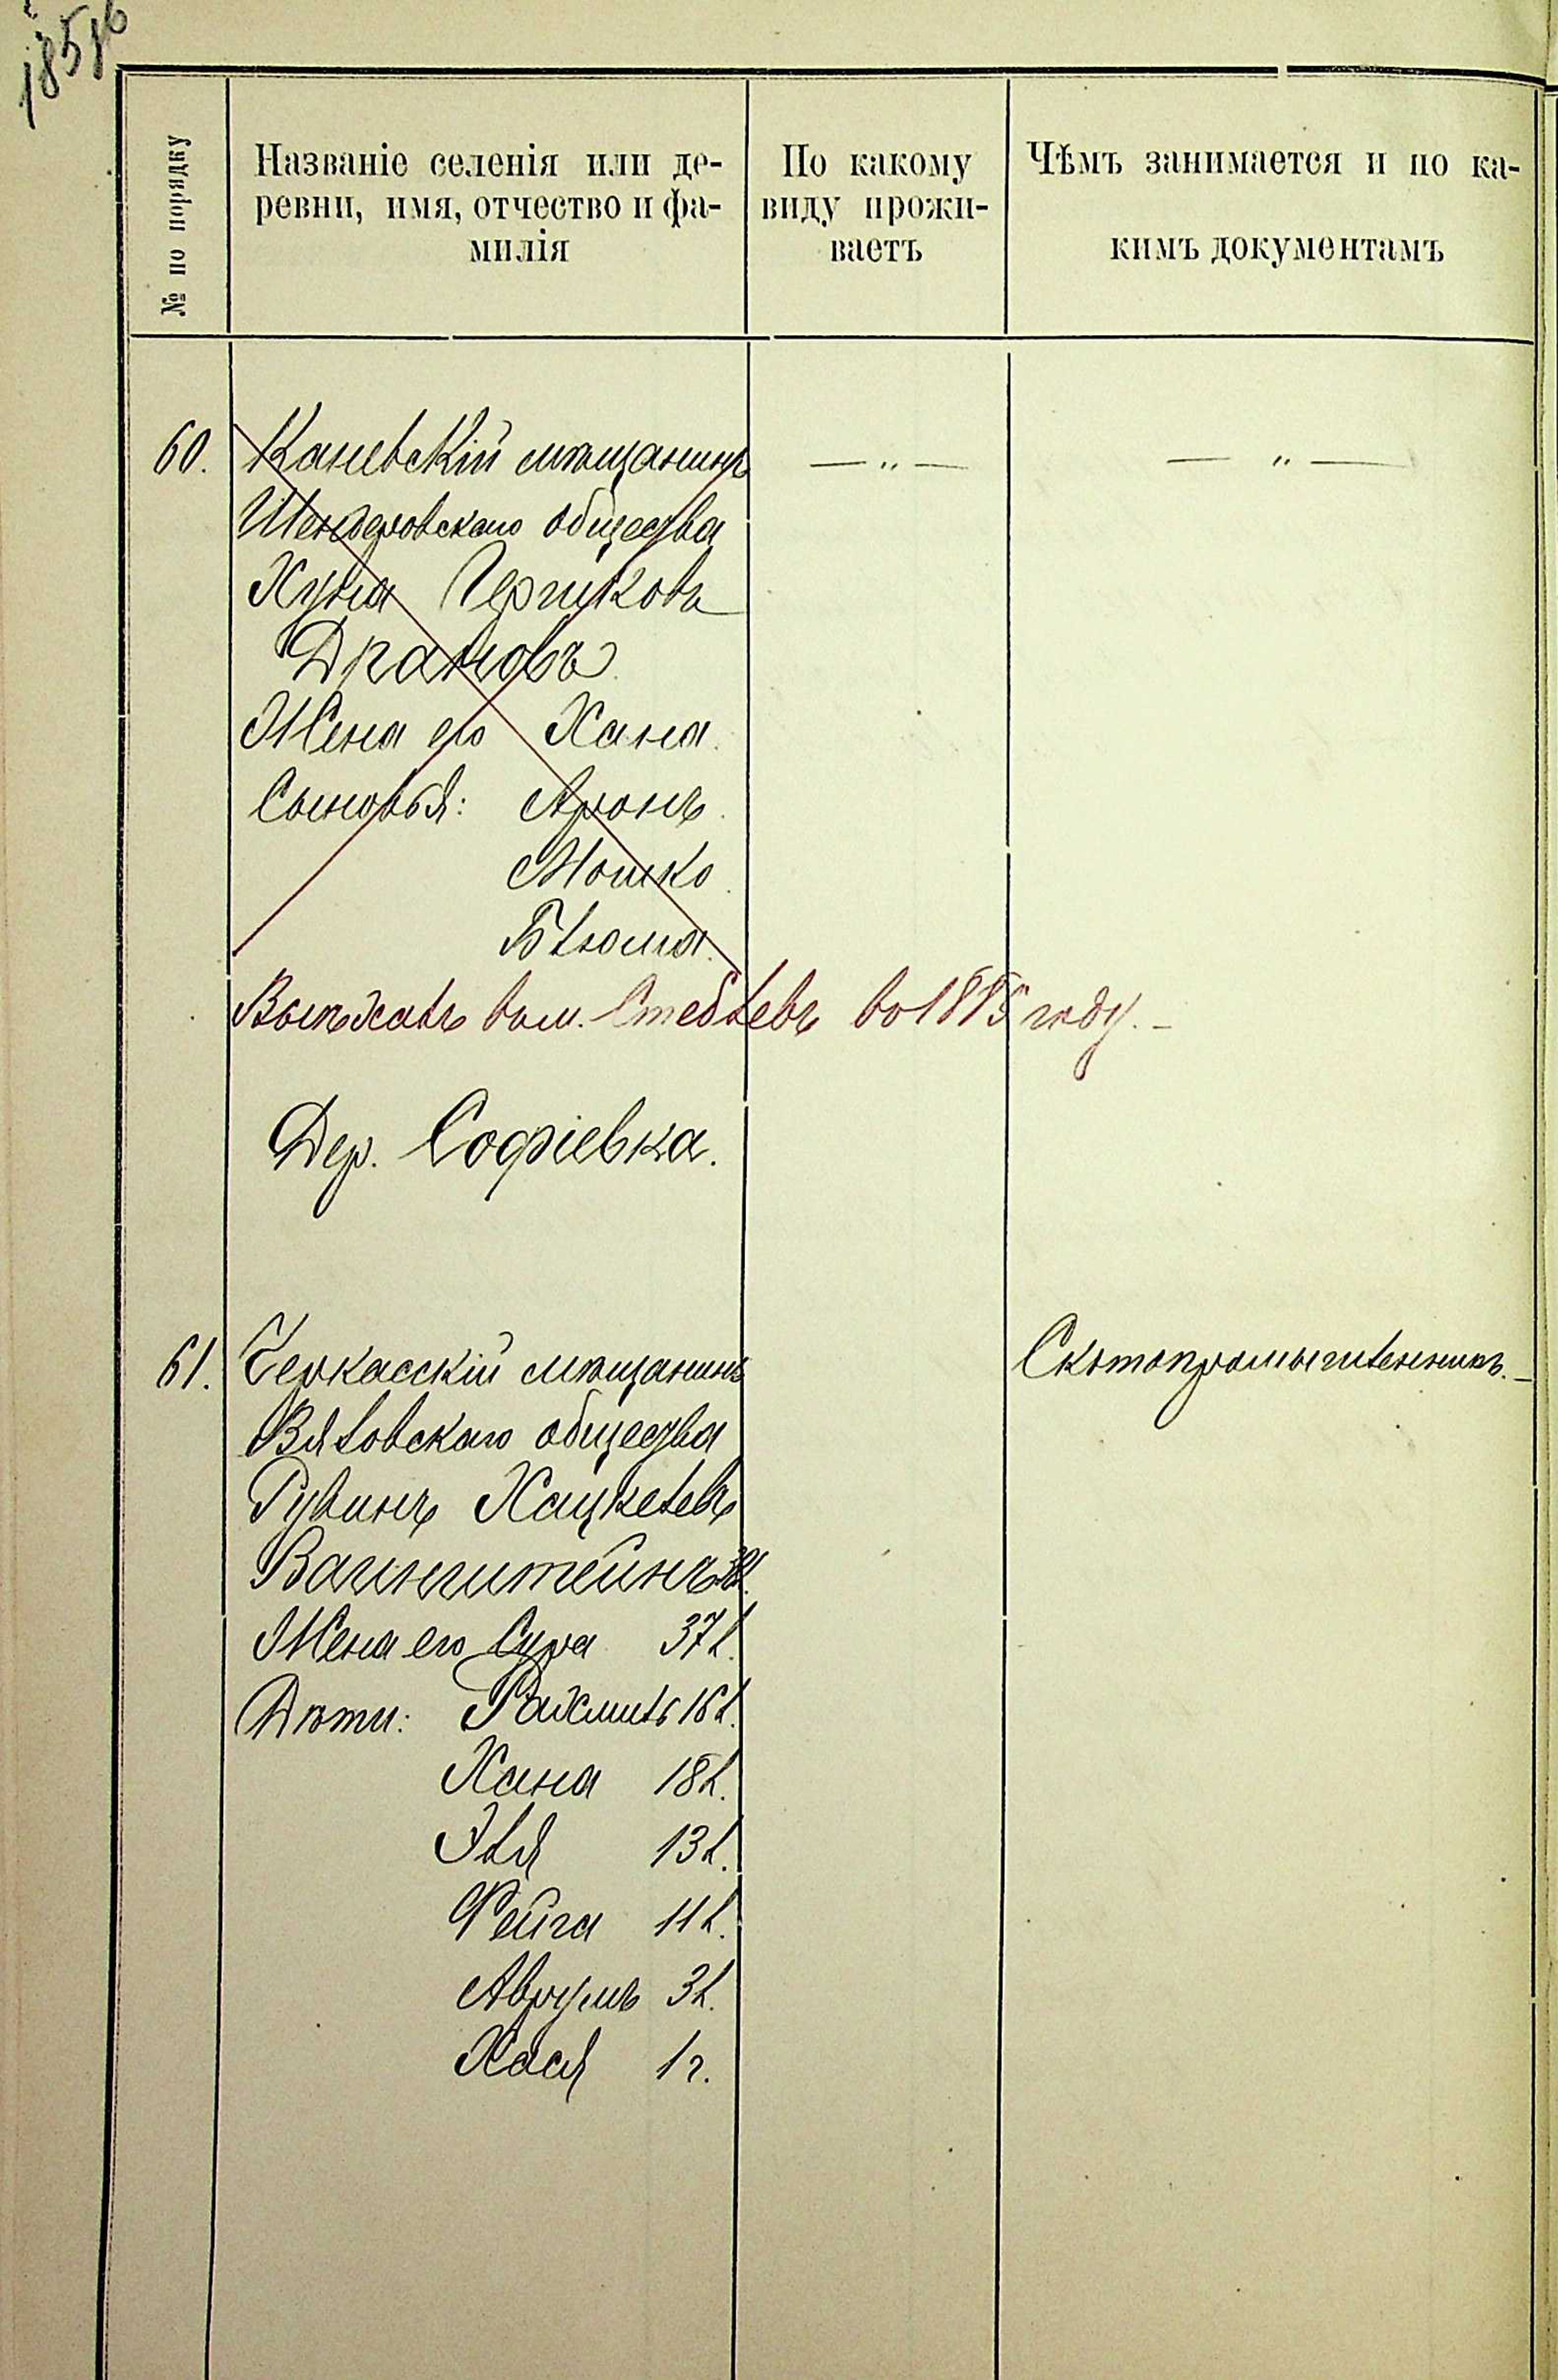 185 об
№ по порядку
Названіе селенія или де-
ревни, имя, отчество и фа-
милія
По какому
виду прожи-
ваетъ
Чѣмъ занимается и по ка-
кимъ документамъ
60. Каневскій мѣщанинъ — „ — — „ —
Шендеровскаго общества
Хуна Гершковъ
Драновъ
Жена его Хана.
Сыновья: Аронъ.
Мошко.
Блюма.
Выѣхалъ въ м. Стеблевъ во 1885 году. –
Дер. Софіевка.
61. Черкасскій мѣщанинъ Скотопромышленникъ. –
Вязовскаго общества
Рувинъ Хацкелевъ
Вайнштейнъ 38 л.
Жена его Сура 37 л.
Дѣти: Рахмиль 16 л.
Хана 18 л.
Эля 13 л.
Фейга 11 л.
Аврумъ 3 л.
Хася 1 г.